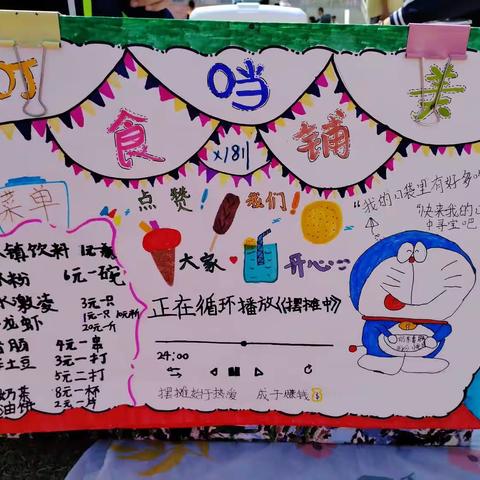 叮 当 美
食 铺
x181
菜单
点赞！我们！
大家 开心
"我的口袋里有好多吃
"快来我的口
中寻宝吧
镇饮料
冰粉 6元一碗
冰激凌 3元一只
龙虾 1元一只
20元一斤
香肠 4元一串
土豆 3元一打
5元二打
奶茶 8元一杯
油饼 2元一片
正在循环播放《摆摊中》
24:00
摆摊始于热爱 成于赚钱